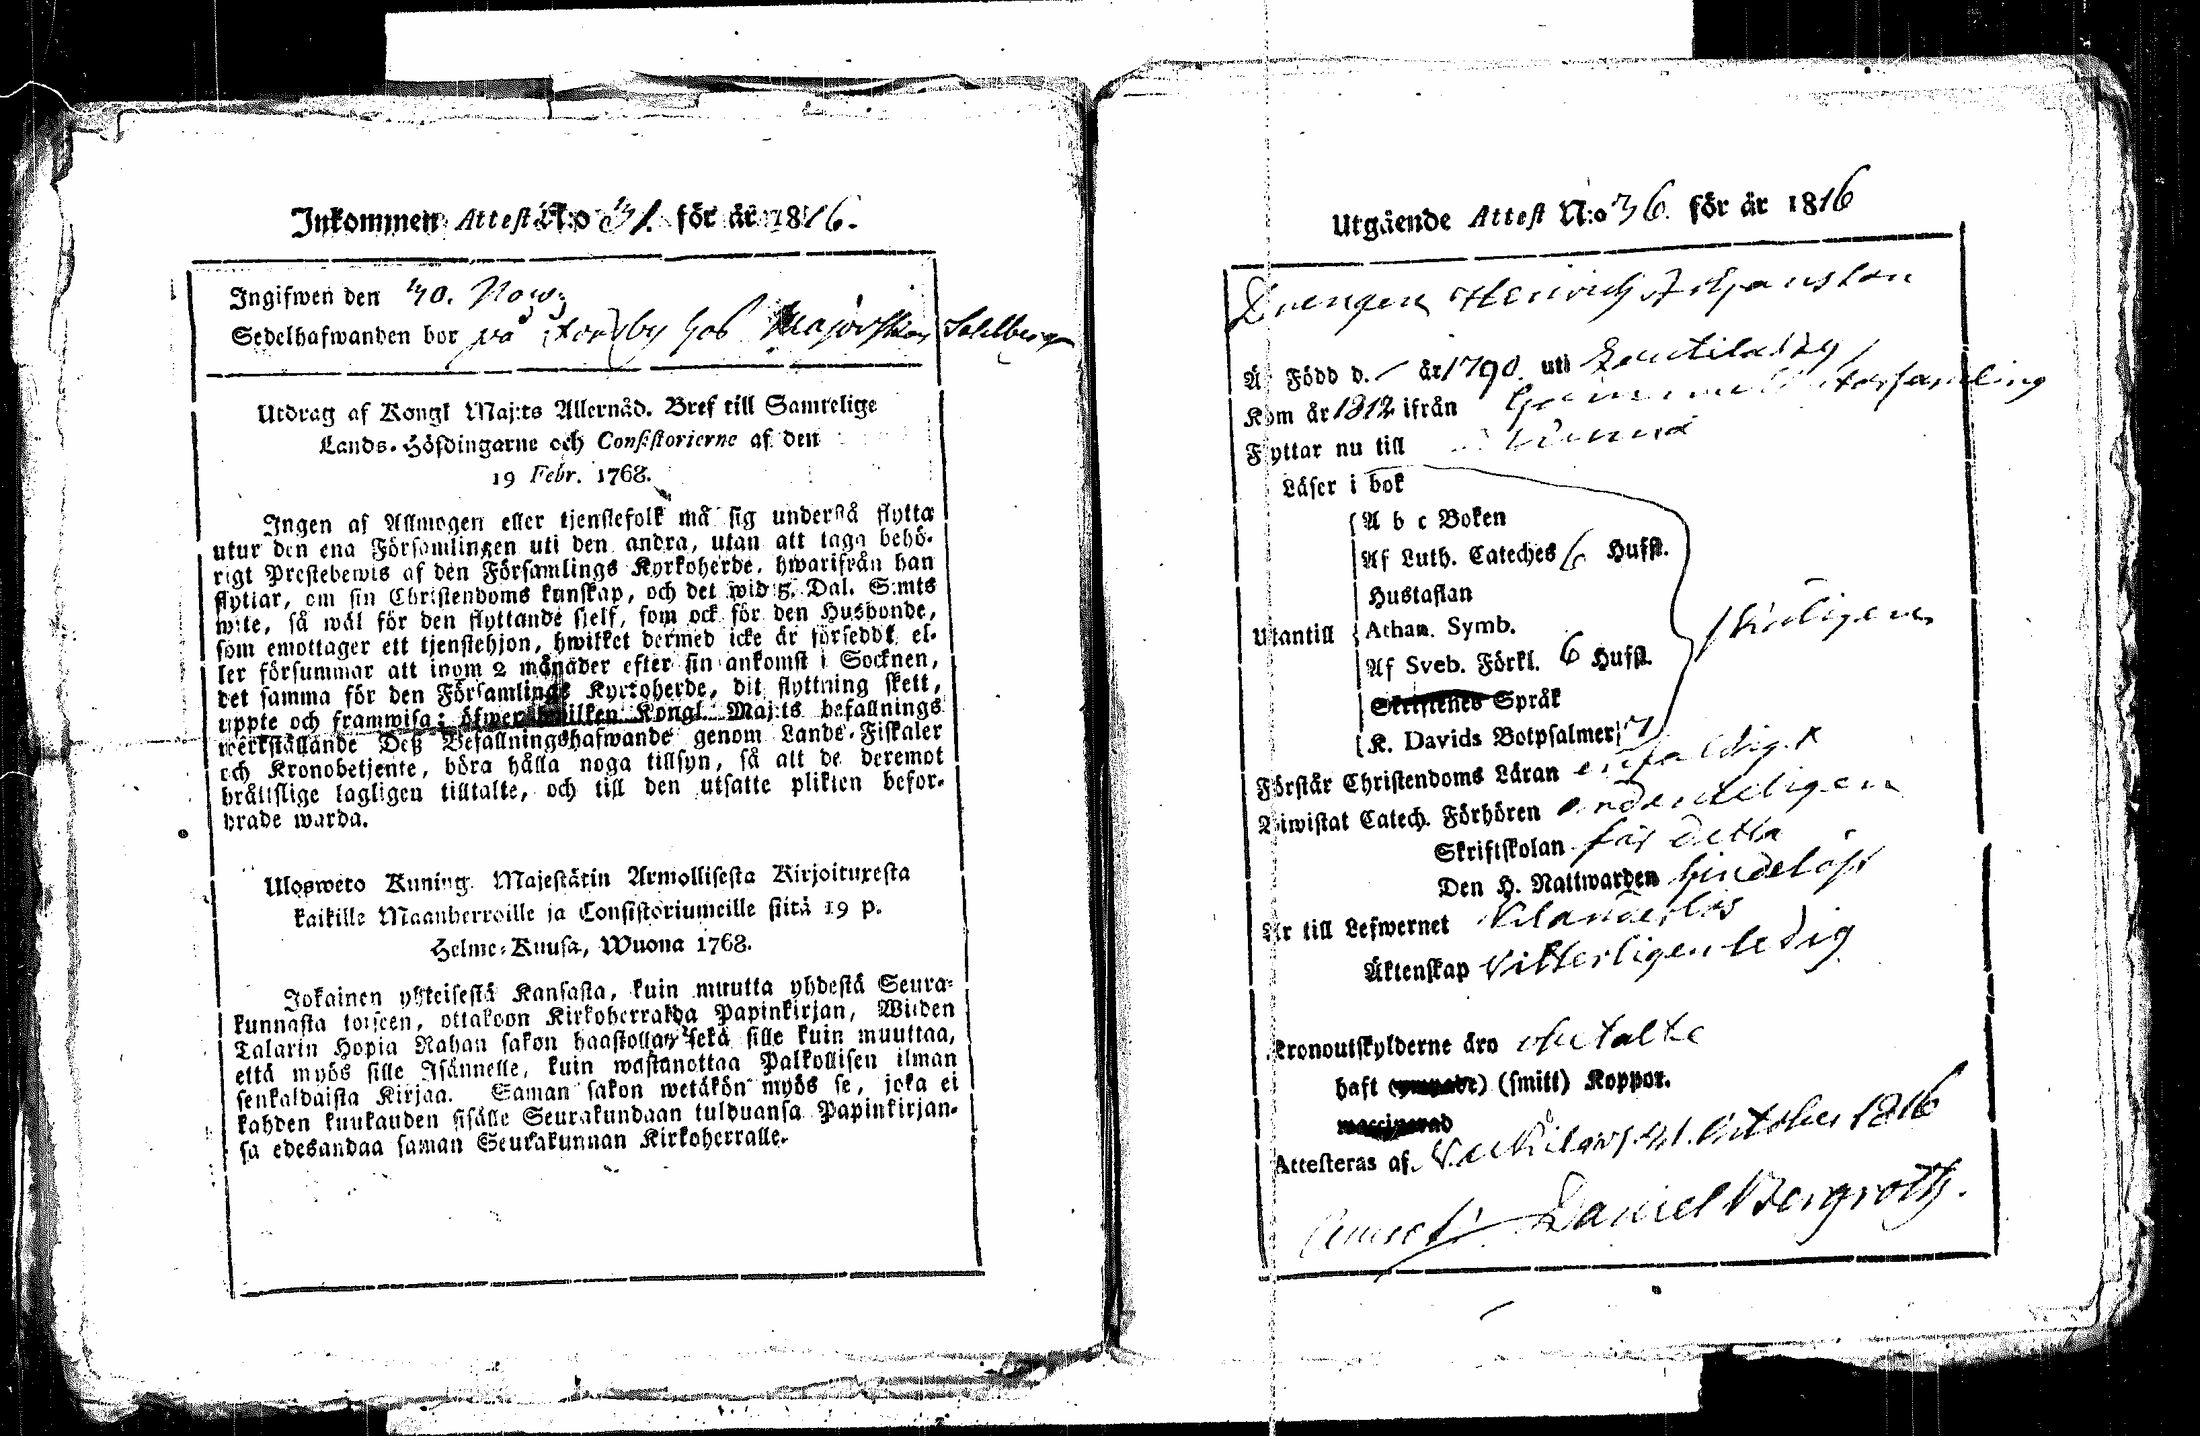 Inkommen Attest N:o 31. för år 1816.
Ingifwen den 30. Nov
Sedelhafwanden bor på hos Majorskan Sahlberg
Utdrag af Kongl Maj:ts Allernåd. Bref till Samtelige
Lands-Höfdingarne och Consistorierne af den
19 Febr. 1768.
Ingen af Allmogen eller tjenstefolk må sig understå flytta
utur den ena Församlingen uti den andra, utan att taga behö-
rigt Prestebewis af den Församlings Kyrkoherde, hwarifrån han
flyttar, om sin Christendoms kunskap, och det wid 5. Dal. S:mts
wite, så wäl för den flyttande sielf, som ock för den Husbonde,
som emottager ett tjenstehjon, hwilket dermed icke är förseddt el-
ler försummar att inom 2 månader efter sin ankomst i Socknen,
det samma för den Församlings Kyrkoherde, dit flyttning skett,
uppte och framwisa; öfwer hwilken Kongl Maj:ts befallnings
werkställande Deß Befallningshafwande genom Lands-Fiskaler
och Kronobetjente, böra hålla noga tillsyn, så att de deremot
bråttslige lagligen tilltalte, och till den utsatte plikten befor-
drade warda.
Ulosweto Kuning. Majestätin Armollisesta Kirjoituxesta
kaikille Maanherroille ja Consistoriumeille siitä 19 p.
Helme-Kuusa, Wuona 1768.
Jokainen yhteisestä Kansasta, kuin muutta yhdestä Seura-
kunnasta toiseen, ottakoon Kirkoherralda Papinkirjan, Wiiden
Talarin Hopia Rahan sakon haastollan, sekä sille kuin muuttaa,
että myös sille Isännelle, kuin wastanottaa Palkollisen ilman
senkaldaista Kirjaa. Saman sakon wetäkön myös se, joka ei
kahden kuukauden sisälle Seurakundaan tulduansa Papinkirjan-
sa edesandaa saman Seurakunnan Kirkoherralle.
Utgående Attest N:o 36. för år 1816
Drengen Henrich
Är Född d. / år 1790. uti
Kom år 1812 ifrån Församling
Flyttar nu till
Läser i bok
A b c Boken
Af Luth. Cateches 6 Hufst.
Hustaflan
Utantill Athan. Symb. skieligen
Af Sveb. Förkl. 6 Hufst.
Skriftenes Språk
K. Davids Botpsalmer 7
Förstår Christendoms Läran enfaldigt
Biwistat Catech. Förhören ordenteligen
Skriftskolan för detta
Den H. Nattwarden hindelöst
Är till Lefwernet klanderlös
Äktenskap vitterligen ledig
Kronoutskylderne äro obetalte
haft (smitt) Koppor.
Attesteras af October 1816
Daniel Bergroth.